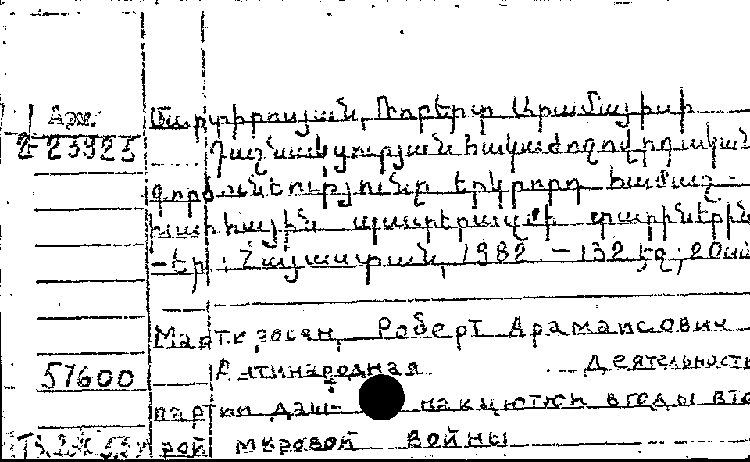 Арм.
Մարտիրոսյան, Ռոբերտ Արամայիսի
2-23923
Դաշնակցության հակաժողովրդական
գործունեությունը երկրորդ համաշ-
խարհային պատերազմի տարիներին
-Եր.: Հայաստան, 1982 – 132 էջ; 20սմ
Мартиросян, Роберт Арамаисович
57600
Антинародная деятельность
партии даш- накцютюн в годы вто
рой мировой войны